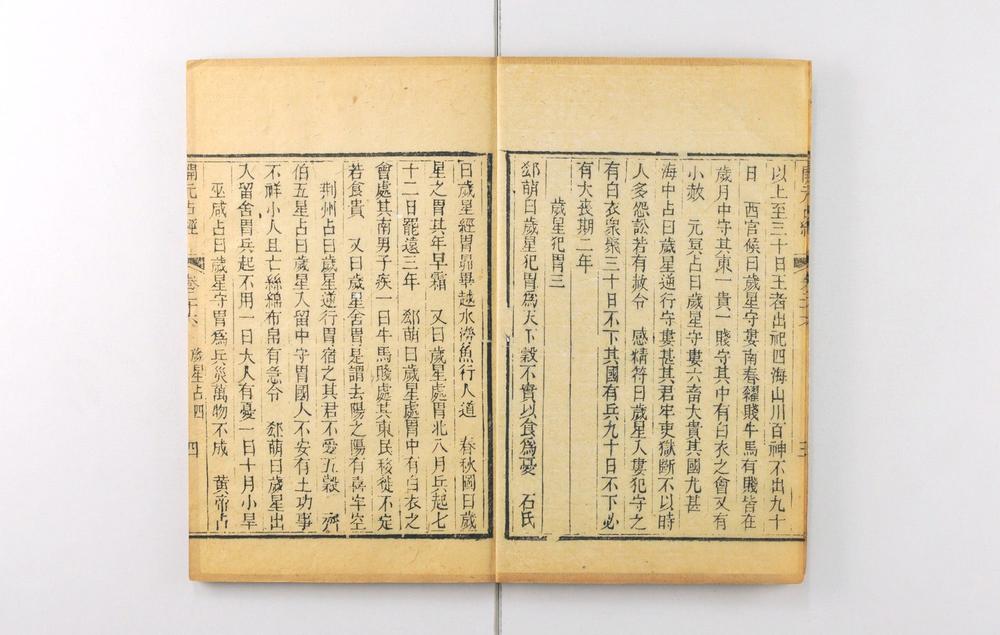 開元占經 卷二十六 三
以上至三十日王者出祀四海山川百神不出九十
日 西官候曰歲星守婁南春糴賤牛馬有賤皆在
歲月中守其東一貴一賤守其中有白衣之會又有
小赦 元冥占曰歲星守婁六畜大貴其國尤甚
海中占曰歲星逆行守婁甚其君牢吏獄斷不以時
人多怨訟若有赦令 感精符曰歲星入婁犯守之
有白衣衆聚三十日不下其國有兵九十日不下必
有大喪期二年
歲星犯胃三
郄萌曰歲星犯胃爲天下穀不實以食爲憂 石氏
曰歲星經胃昴畢越水澇魚行人道 春秋圖曰歲
星之胃其年早霜 又曰歲星處胃北八月兵起七
十二日罷遠三年 郄萌曰歲星處胃中有白衣之
會處其南男子疾一曰牛馬賤處其東民移徙不定
若食貴 又曰歲星舍胃是謂去陽之陽有喜牢空
荆州占曰歲星逆行胃宿之其君不愛五穀 齊
伯五星占曰歲星入留中守胃國人不安有土功事
不祥小人且亡絲綿布帛有急令 郄萌曰歲星出
入留舍胃兵起不用一曰大人有憂一曰十月小旱
巫咸占曰歲星守胃爲兵災萬物不成 黃帝占
開元占經 卷二十六 歲星占四 四